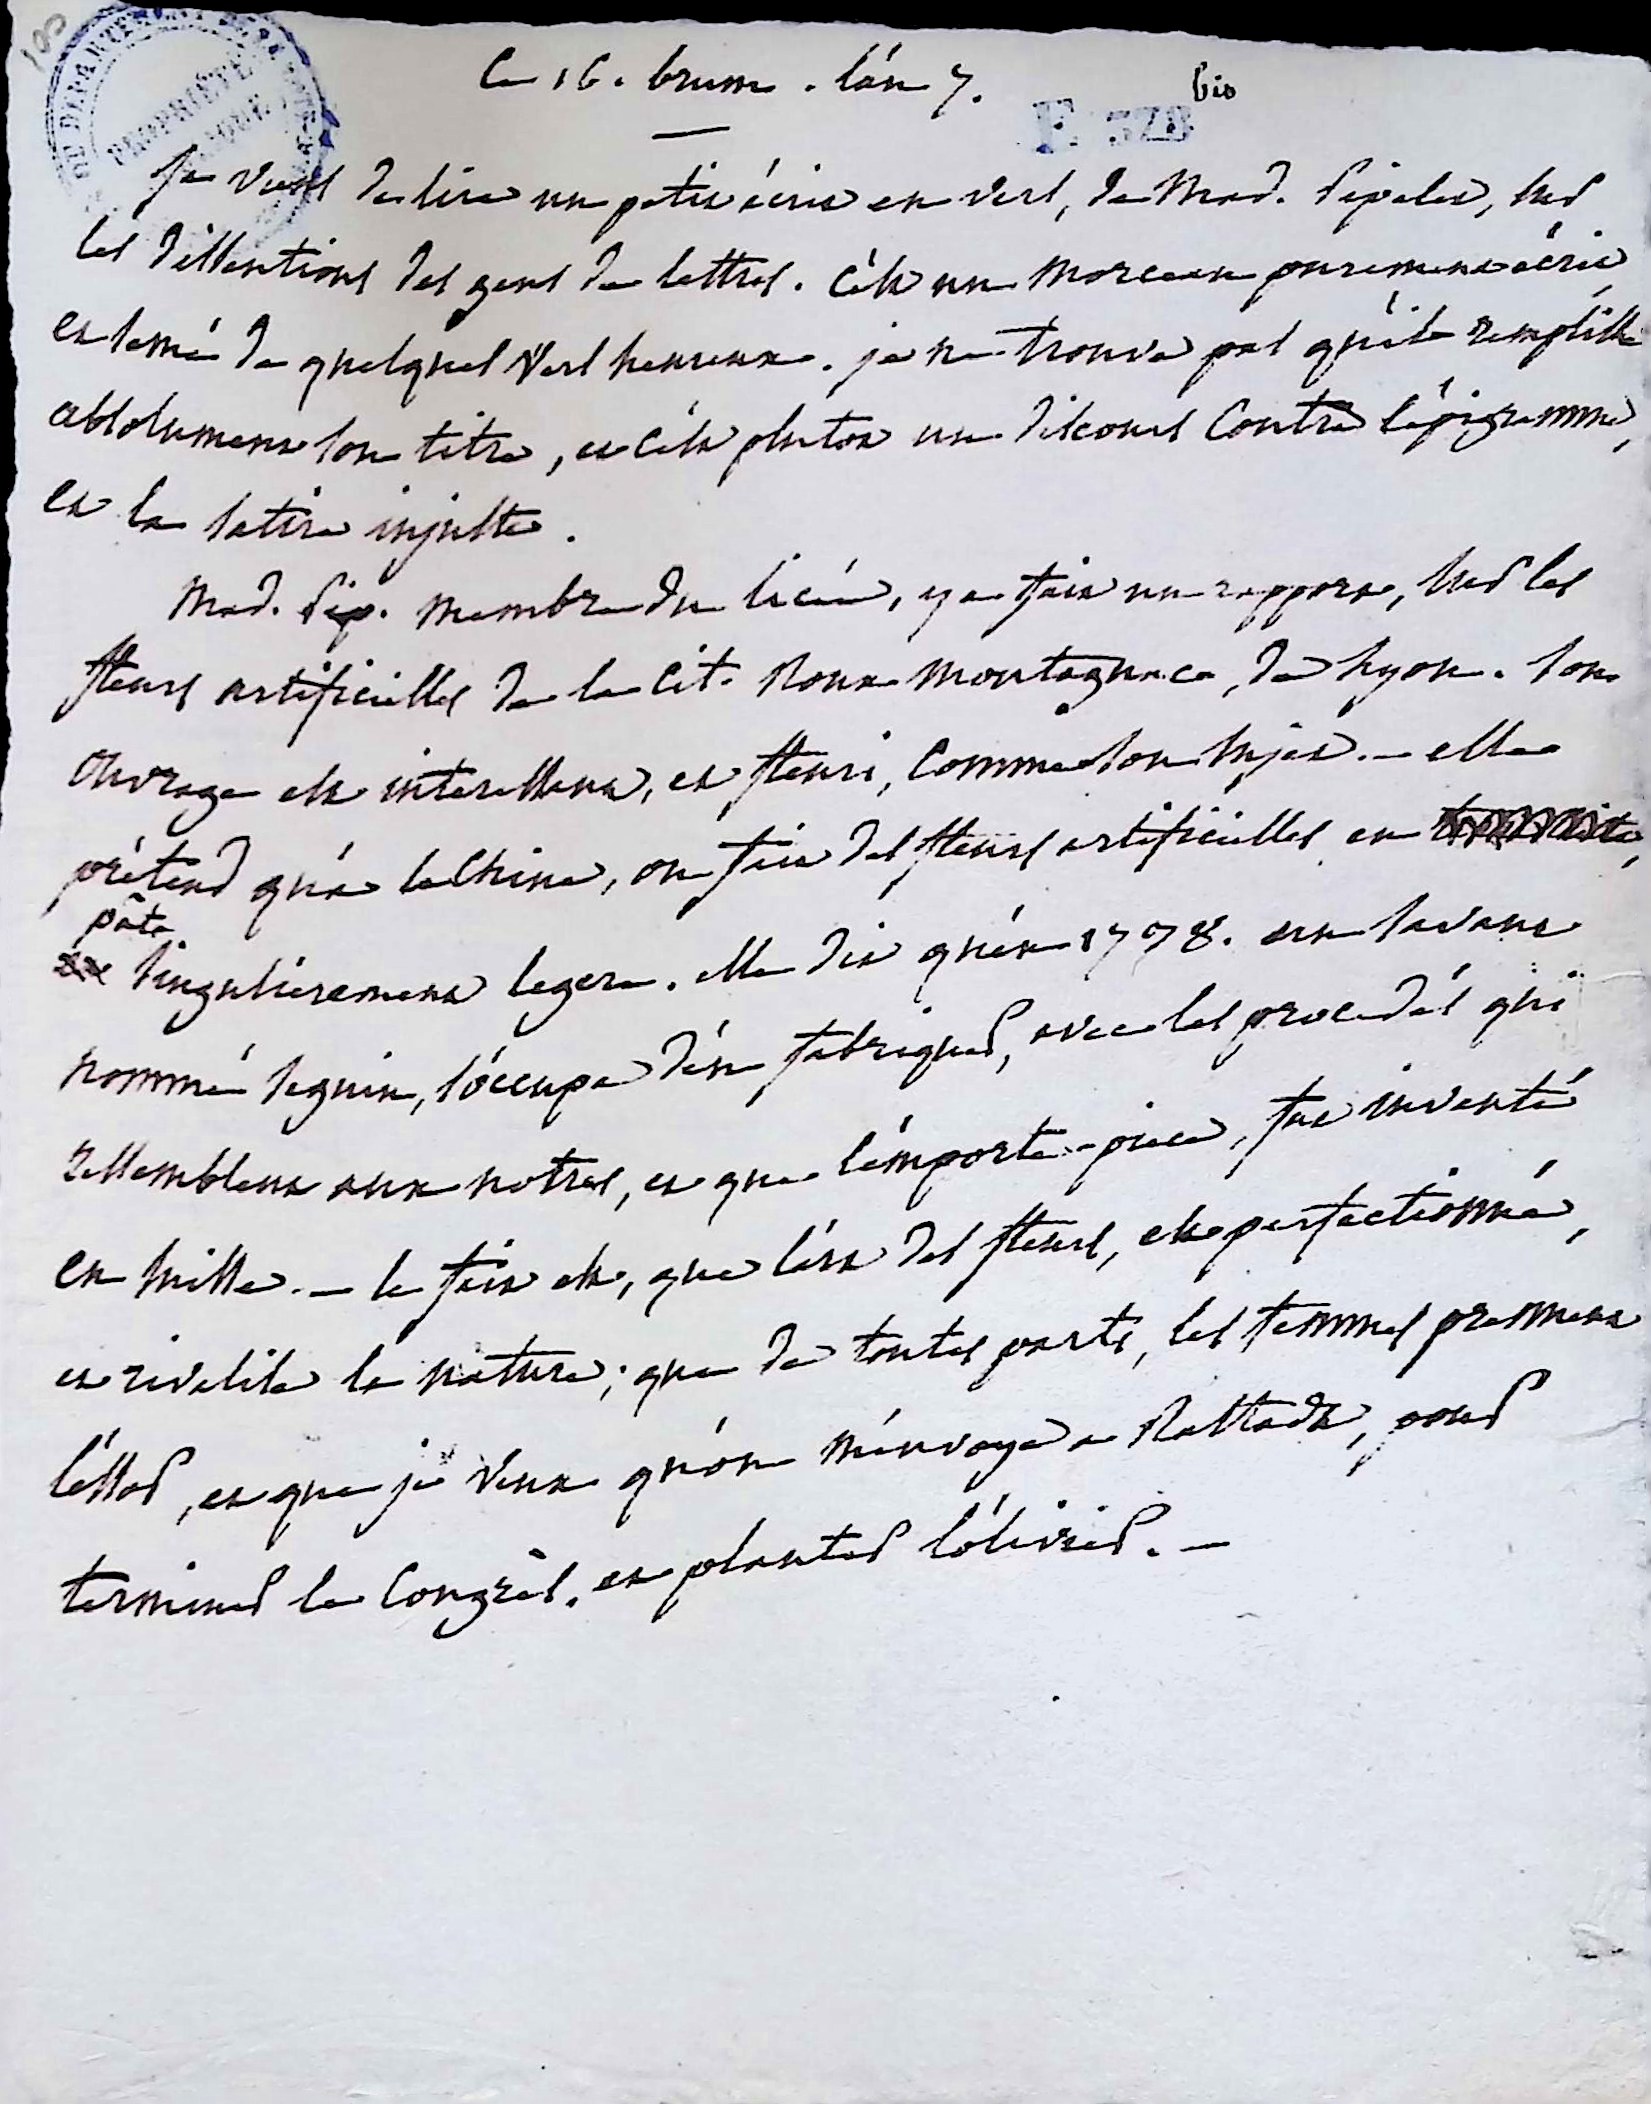 100
DU DEPARTEMENT
PROPRIÉTÉ
PUBLIQUE
Ce 16. brum. l'an 7.
bis
F 328
Je viens de lire un petit écrit en vers, de Mad. Pipelet, sur
les dissentions des gens de lettres. c'est un morceau purement écrit,
et semé de quelques vers heureux. je ne trouve pas qu'il remplisse
absolument son titre, et c'est plutot un discours contre l'épigramme,
et la satire injuste.
Mad. Pip. membre du licée, y a fait un rapport, sur les
fleurs artificielles de la Cit. Roux Montagnac, de Lyon. son
ouvrage est interessant, et fleuri, comme son sujet. - elle
prétend qu'à la Chine, on fait des fleurs artificielles en
pâte
singulierement legere. elle dit qu'en 1778. un savant
nommé Seguin, s'occupa d'en fabriquer, avec les procedés qui
ressemblent aux notres, et que l'emporte-piece, fut inventé
en Suisse. - le fait est, que l'art des fleurs, est perfectionné,
et rivalise la nature ; que de toutes parts, les femmes prennent
l'essor, et que je veux qu'on m'envoye a Rastadt, pour
terminer le Congrès. et planter l'olivier. -